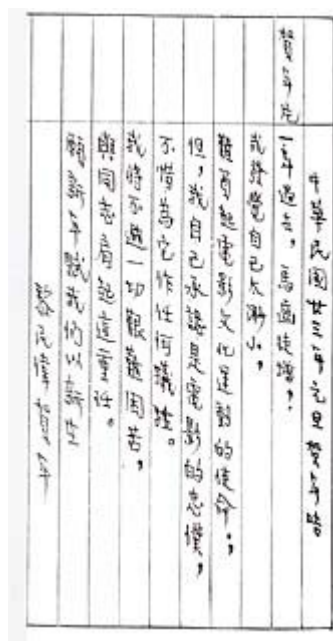 中華民國廿三年元旦賀年啓
賀年片
一年過去，馬齒徒增，
我發覺自己太渺小，
難肩起電影文化運動的使命，
但，我自己承認是電影的忠僕，
不惜為它作任何犧牲。
我將不避一切艱難困苦，
與同志肩起這重任。
願新年賦我們以新生